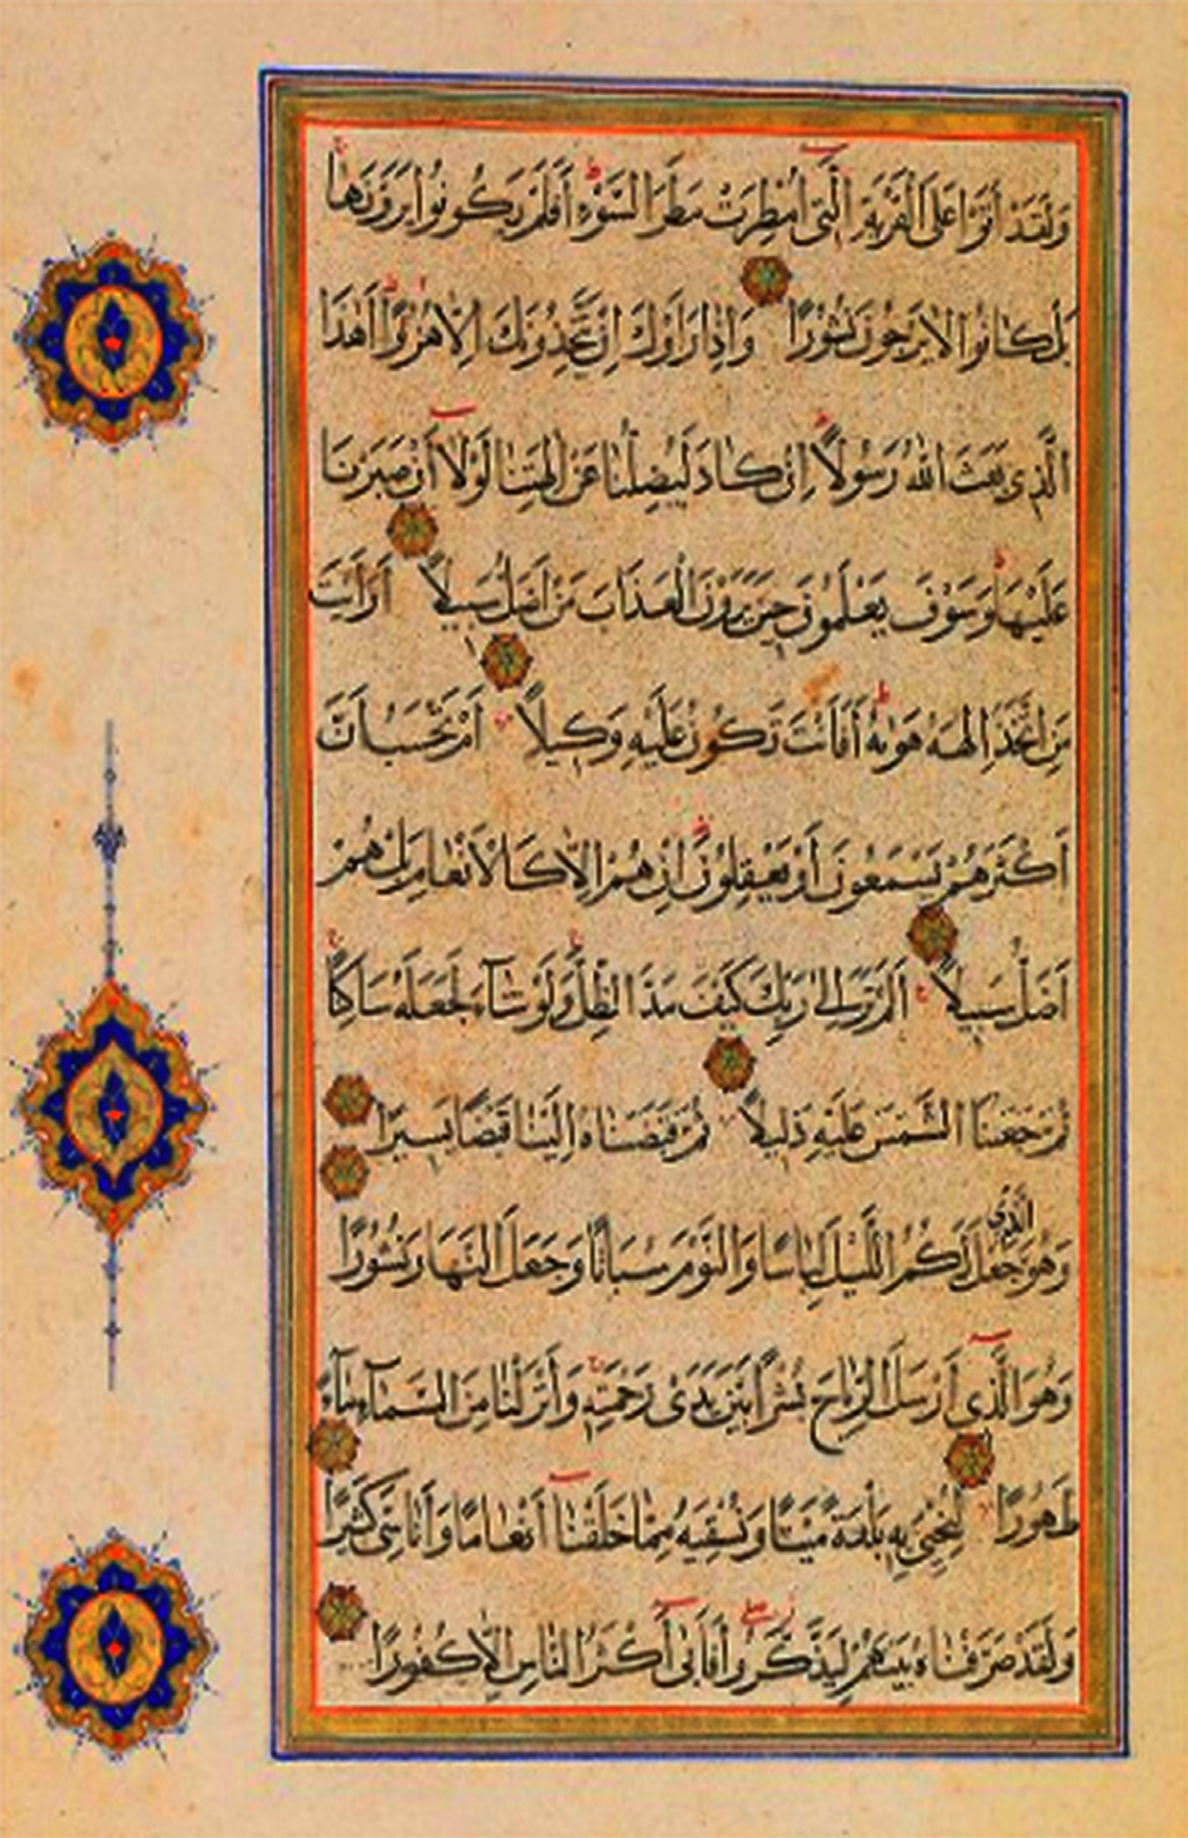 وَلَقَدْ أَتَوْا عَلَى الْقَرْيَةِ الَّتِي أُمْطِرَتْ مَطَرَ السَّوْءِ أَفَلَمْ يَكُونُوا يَرَوْنَهَا
بَلْ كَانُوا لَا يَرْجُونَ نُشُورًا وَإِذَا رَأَوْكَ إِنْ يَتَّخِذُونَكَ إِلَّا هُزُوًا أَهٰذَا
الَّذِي بَعَثَ اللّٰهُ رَسُولًا إِنْ كَادَ لَيُضِلُّنَا عَنْ اٰلِهَتِنَا لَوْلَا أَنْ صَبَرْنَا
عَلَيْهَا وَسَوْفَ يَعْلَمُونَ حِينَ يَرَوْنَ الْعَذَابَ مَنْ أَضَلُّ سَبِيلًا أَرَأَيْتَ
مَنِ اتَّخَذَ إِلٰهَهُ هَوٰيهُ أَفَأَنْتَ تَكُونُ عَلَيْهِ وَكِيلًا أَمْ تَحْسَبُ أَنَّ
أَكْثَرَهُمْ يَسْمَعُونَ أَوْ يَعْقِلُونَ إِنْ هُمْ إِلَّا كَالْأَنْعَامِ بَلْ هُمْ
أَضَلُّ سَبِيلًا أَلَمْ تَرَ إِلٰى رَبِّكَ كَيْفَ مَدَّ الظِّلَّ وَلَوْ شَآءَ لَجَعَلَهُ سَاكِنًا
ثُمَّ جَعَلْنَا الشَّمْسَ عَلَيْهِ دَلِيلًا ثُمَّ قَبَضْنَاهُ إِلَيْنَا قَبْضًا يَسِيرًا
وَهُوَ الَّذِي جَعَلَ لَكُمُ اللَّيْلَ لِبَاسًا وَالنَّوْمَ سُبَاتًا وَجَعَلَ النَّهَارَ نُشُورًا
وَهُوَ الَّذِي أَرْسَلَ الرِّيَاحَ نُشْرًا بَيْنَ يَدَيْ رَحْمَتِهِ وَأَنْزَلْنَا مِنَ السَّمَآءِ مَآءً
طَهُورًا لِنُحْيِيَ بِهِ بَلْدَةً مَيْتًا وَنُسْقِيَهُ مِمَّا خَلَقْنَآ أَنْعَامًا وَأَنَاسِيَّ كَثِيرًا
وَلَقَدْ صَرَّفْنَاهُ بَيْنَهُمْ لِيَذَّكَّرُوا فَأَبٰى أَكْثَرُ النَّاسِ إِلَّا كُفُورًا